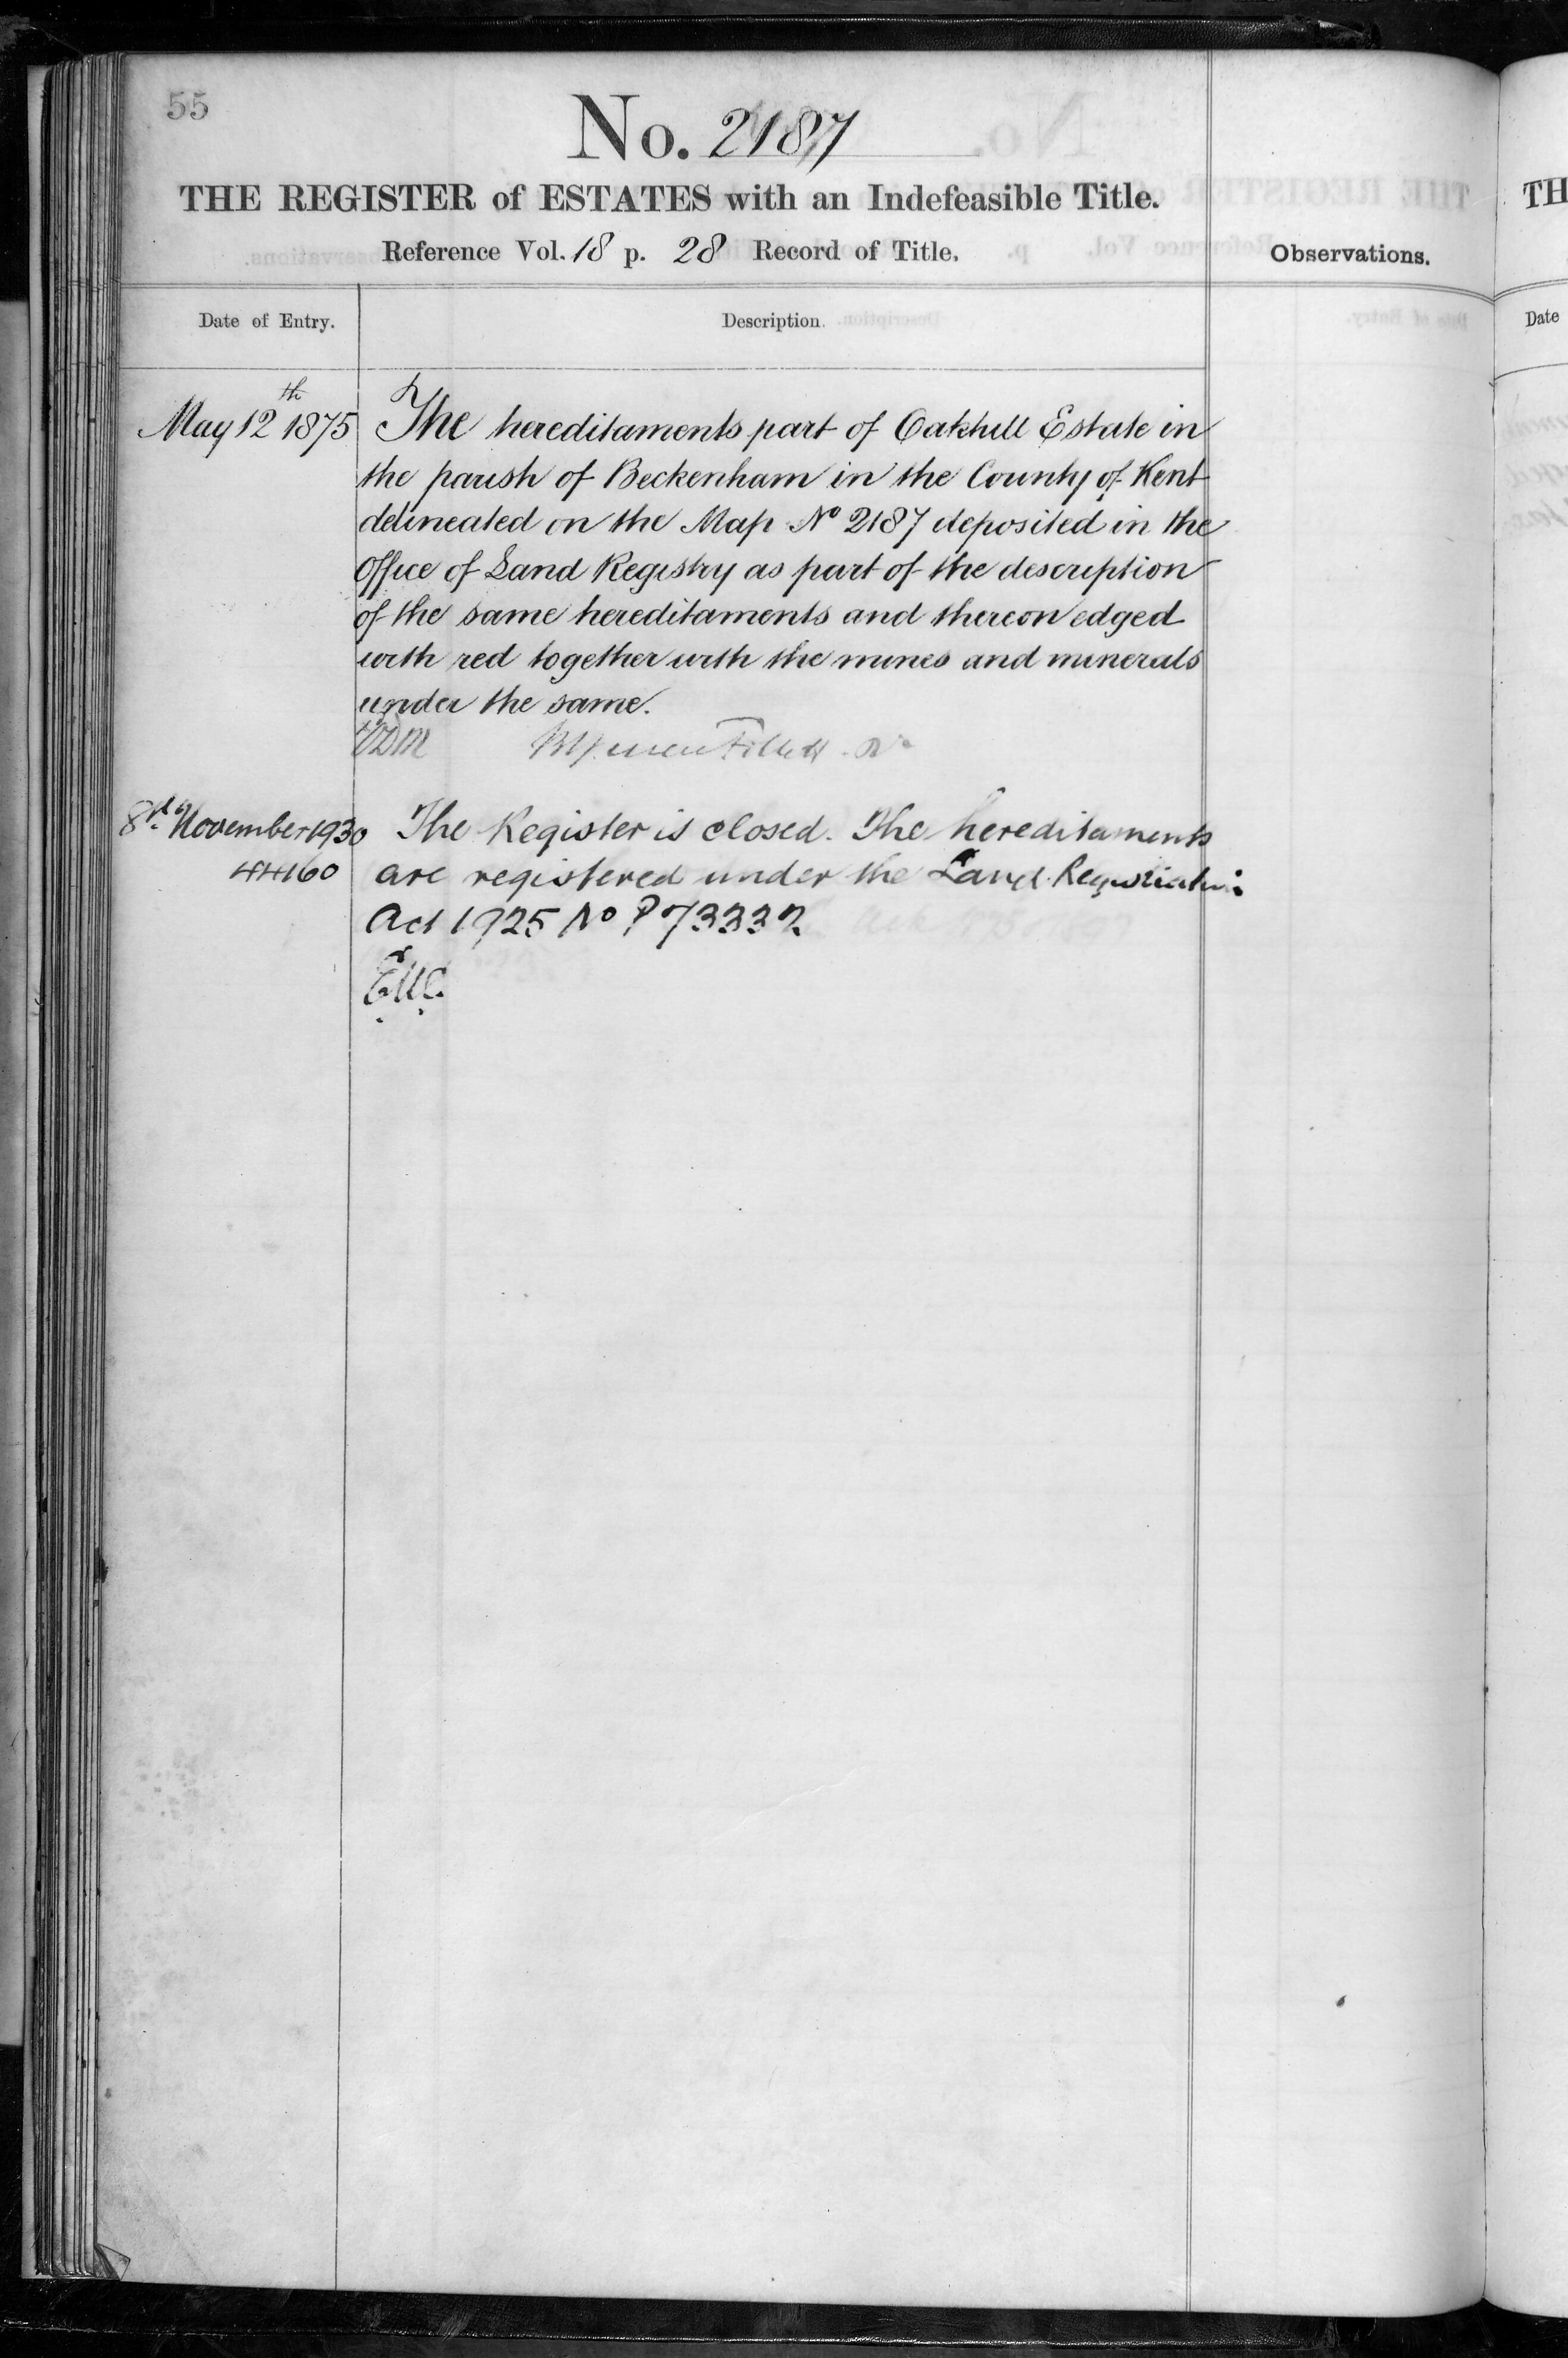 55
No. 2187
THE REGISTER of ESTATES with an Indefeasible Title.
Reference Vol. 18 p. 28 Record of Title.
Observations.
Date of Entry.
Description.
May 12th 1875
The hereditaments part of Oakhill Estate in
the parish of Beckenham in the County of Kent
delineated on the Map No 2187 deposited in the
Office of Land Registry as part of the description
of the same hereditaments and thereon edged
with red together with the mines and minerals
under the same.
8th November 1930
44160
The Register is closed. The hereditaments
are registered under the Land Registration
Act 1925 No P 73332
TH
Date